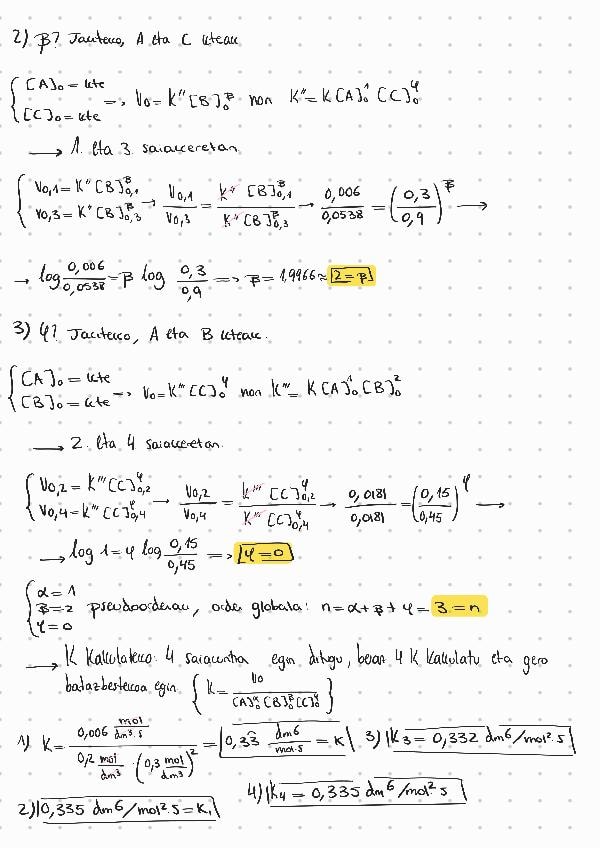 2) β? Jakiteko, A eta C kteak
{ [A]₀ = kte
[C]₀ = kte → V₀ = K'' [B]₀^β non K'' = K [A]₀¹ [C]₀^φ
→ 1. eta 3. saiakeretan
{ V₀,₁ = K'' [B]^β₀,₁
V₀,₃ = K'' [B]^β₀,₃ → V₀,₁/V₀,₃ = K'' [B]^β₀,₁ / K'' [B]^β₀,₃ → 0,006/0,0538 = (0,3/0,9)^β →
→ log 0,006/0,0538 = β log 0,3/0,9 => β = 1,9966 ≈ 2 = β
3) φ? Jakiteko, A eta B kteak.
{ [A]₀ = kte
[B]₀ = kte → V₀ = K''' [C]₀^φ non K''' = K [A]₀¹ [B]₀²
→ 2. eta 4 saiakeretan.
{ V₀,₂ = K''' [C]^φ₀,₂
V₀,₄ = K''' [C]^φ₀,₄ → V₀,₂/V₀,₄ = K''' [C]^φ₀,₂ / K''' [C]^φ₀,₄ → 0,0181/0,0181 = (0,15/0,45)^φ →
→ log 1 = φ log 0,15/0,45 => φ = 0
{ α = 1
β = 2
φ = 0 pseudoordenak, orden globala: n = α + β + φ = 3 = n
→ K Kalkulateko: 4 saiakuntza egin ditugu, beraz 4 K kalkulatu eta gero
batazbestekoa egin { K = V₀/[A]₀^α [B]₀^β [C]₀^φ }
1) K = 0,006 mol/dm³·s / 0,2 mol/dm³ · (0,3 mol/dm³)² = 0,33 dm⁶/mol²·s = K 3) K₃ = 0,332 dm⁶/mol²·s
2) 0,335 dm⁶/mol²·s = K₁ 4) K₄ = 0,335 dm⁶/mol² s